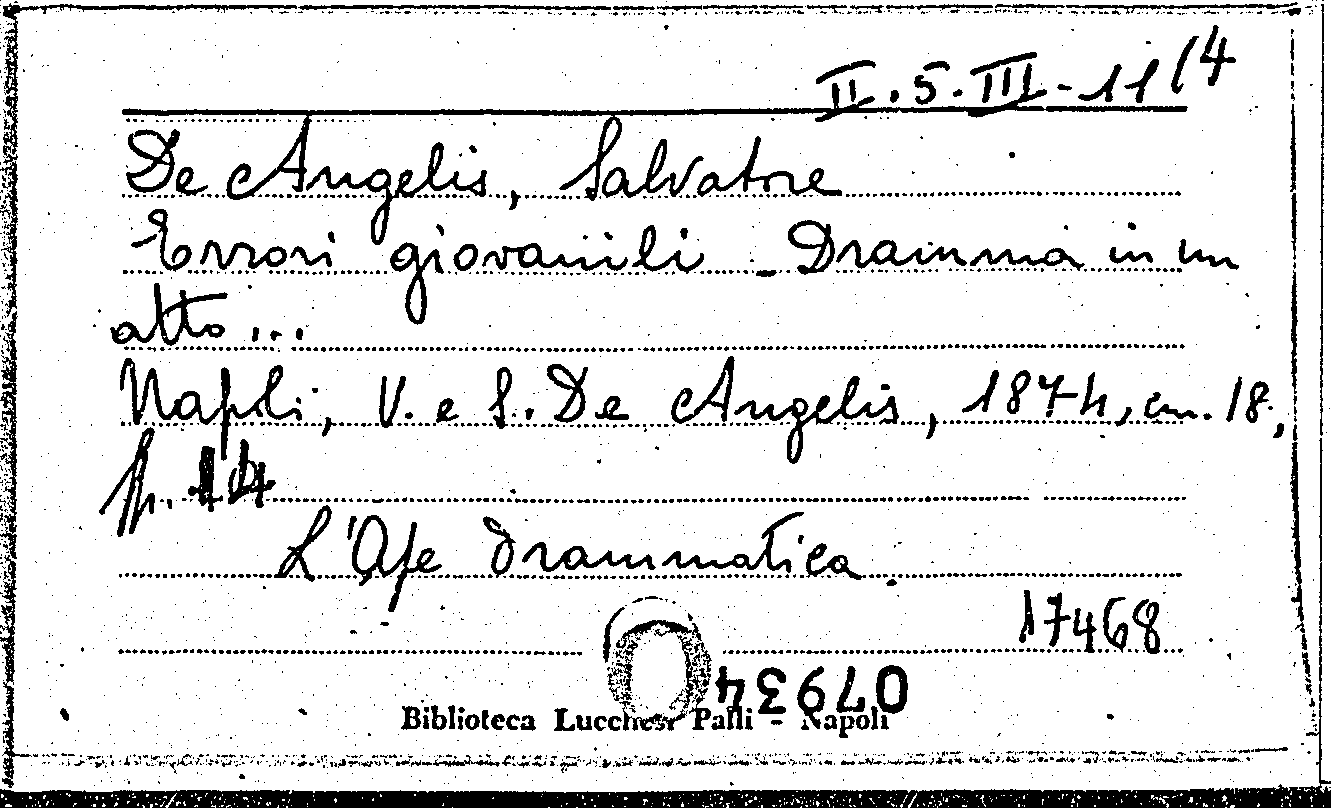 II.5.III-11/4
De Angelis, Salvatore
Errori giovanili - Dramma in un
atto...
Napoli, V. e S. De Angelis, 1874, cm. 18,
pp. 14
L'Ape drammatica.
17468
07934
Biblioteca Lucchesi Palli - Napoli